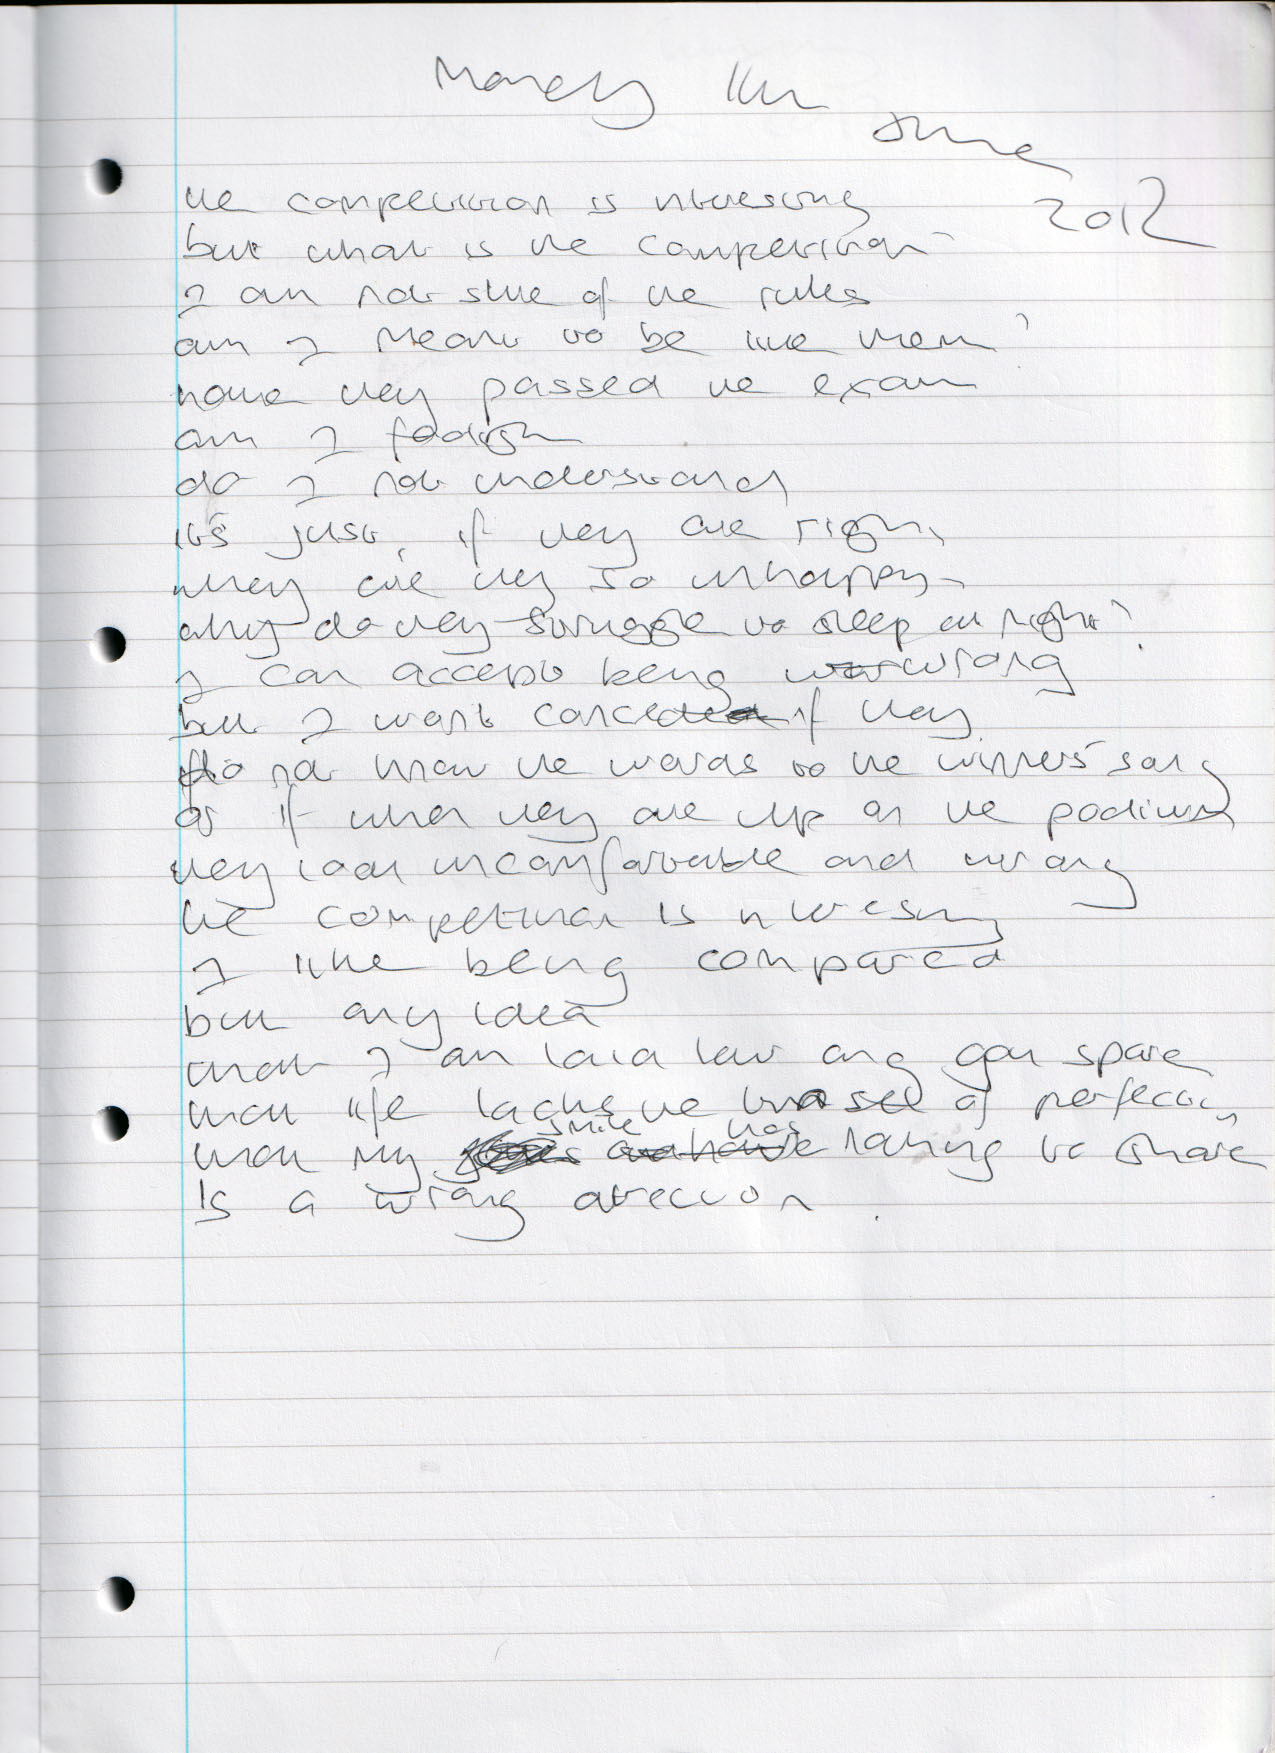 Monday 11th
June
2012
the competition is interesting
but what is the competition
I am not sure of the rules
am I meant to be like them?
have they passed the exam
am I foolish
do I not understand
it's just, if they are right,
why are they so unhappy
why do they struggle to sleep at night?
I can accept being wrong
but I wont concede if they
do not know the words to the winners' song
or if when they are up on the podium
they look uncomfortable and wrong
the competition is interesting
I like being compared
but any idea
that I am laid low any gon spare
that life lacks the of perfection,
that my smile has nothing to share
is a wrong direction.